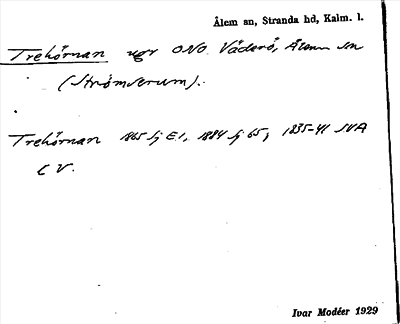 Ålem an, Stranda hd, Kalm. l.
Trehörnan ugr ONO. Väderö, Ålem sn
(Strömserum).
Trehörnan 1865 fj E.1, 1884 fj 65, 1835-41 SVA
C V.
Ivar Modéer 1929